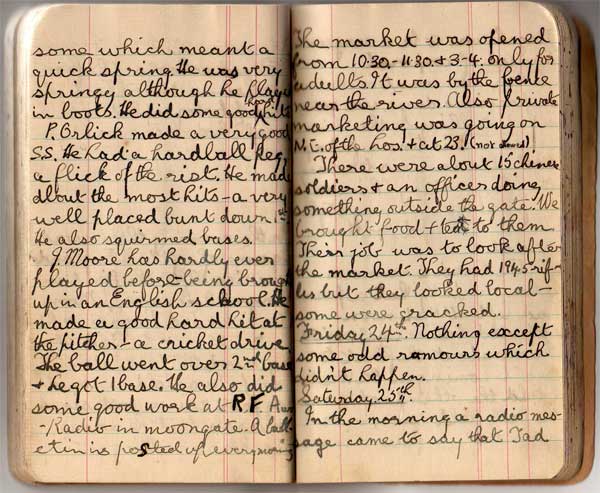 some which meant a
quick spring. He was very
springy although he played
in boots. He did some good hard hits
P. Orlick made a very good
S.S. He had a hardball Peg,
a flick of the rist. He made
about the most hits - a very
well placed bunt down 1st.
He also squirmed bases.
J. Moore has hardly ever
played before - being brough
up in an English school. He
made a good hard hit at
the pitcher - a cricket drive
The ball went over 2nd base
& he got 1 base. He also did
some good work at R.F.
-Kadib in moongate. A bull-
etin is posted up every morning
The market was opened
from 10.30 - 11.30 & 3-4. only for
adults. It was by the fence
near the river. Also private
marketing was going on
N.E. of the hos. & at 23. (not allowed)
There were about 15 chinese
soldiers & an officer doing
something outside the gate. We
brought food & tea to them
Their job was to look after
the market. They had 1945 rif-
les but they looked local -
some were cracked.
Friday 24th. Nothing except
some odd ramours which
didn't happen.
Saturday 25th.
In the morning a radio mes-
sage came to say that Tad